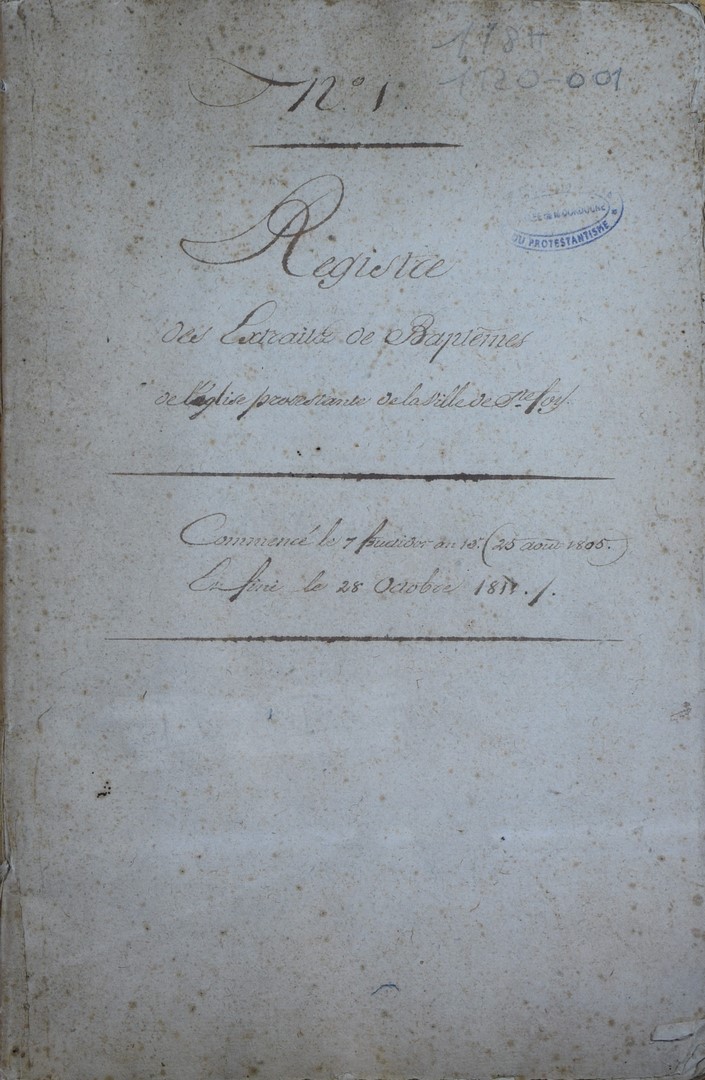 178H
1120-001
N.o 1.
DU PROTESTANTISME
Registre
des Extraits de Baptêmes
de l'église protestante de la ville de Ste foy.
Commencé le 7 fructidor an 13. (25 août 1805.)
Et fini le 28 Octobre